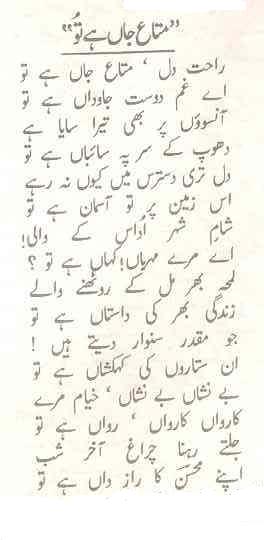 ”متاع جاں ہے تُو“
راحت دل ، متاع جاں ہے تو
اے غم دوست جاوداں ہے تو
آنسوؤں پر بھی تیرا سایا ہے
دھوپ کے سر پہ سائباں ہے تو
دل تری دسترس میں کیوں نہ رہے
اس زمین پر تو آسمان ہے تو
شامِ شہر اُداس کے والی!
اے مرے مہرباں! کہاں ہے تو ؟
لمحہ بھر مل کے روٹھنے والے
زندگی بھر کی داستاں ہے تو
جو مقدر سنوار دیتے ہیں !
ان ستاروں کی کہکشاں ہے تو
بے نشاں بے نشاں ، خیام مرے
کارواں کارواں ، رواں ہے تو
جلتے رہنا چراغ آخر شب
اپنے محسنؔ کا راز داں ہے تو